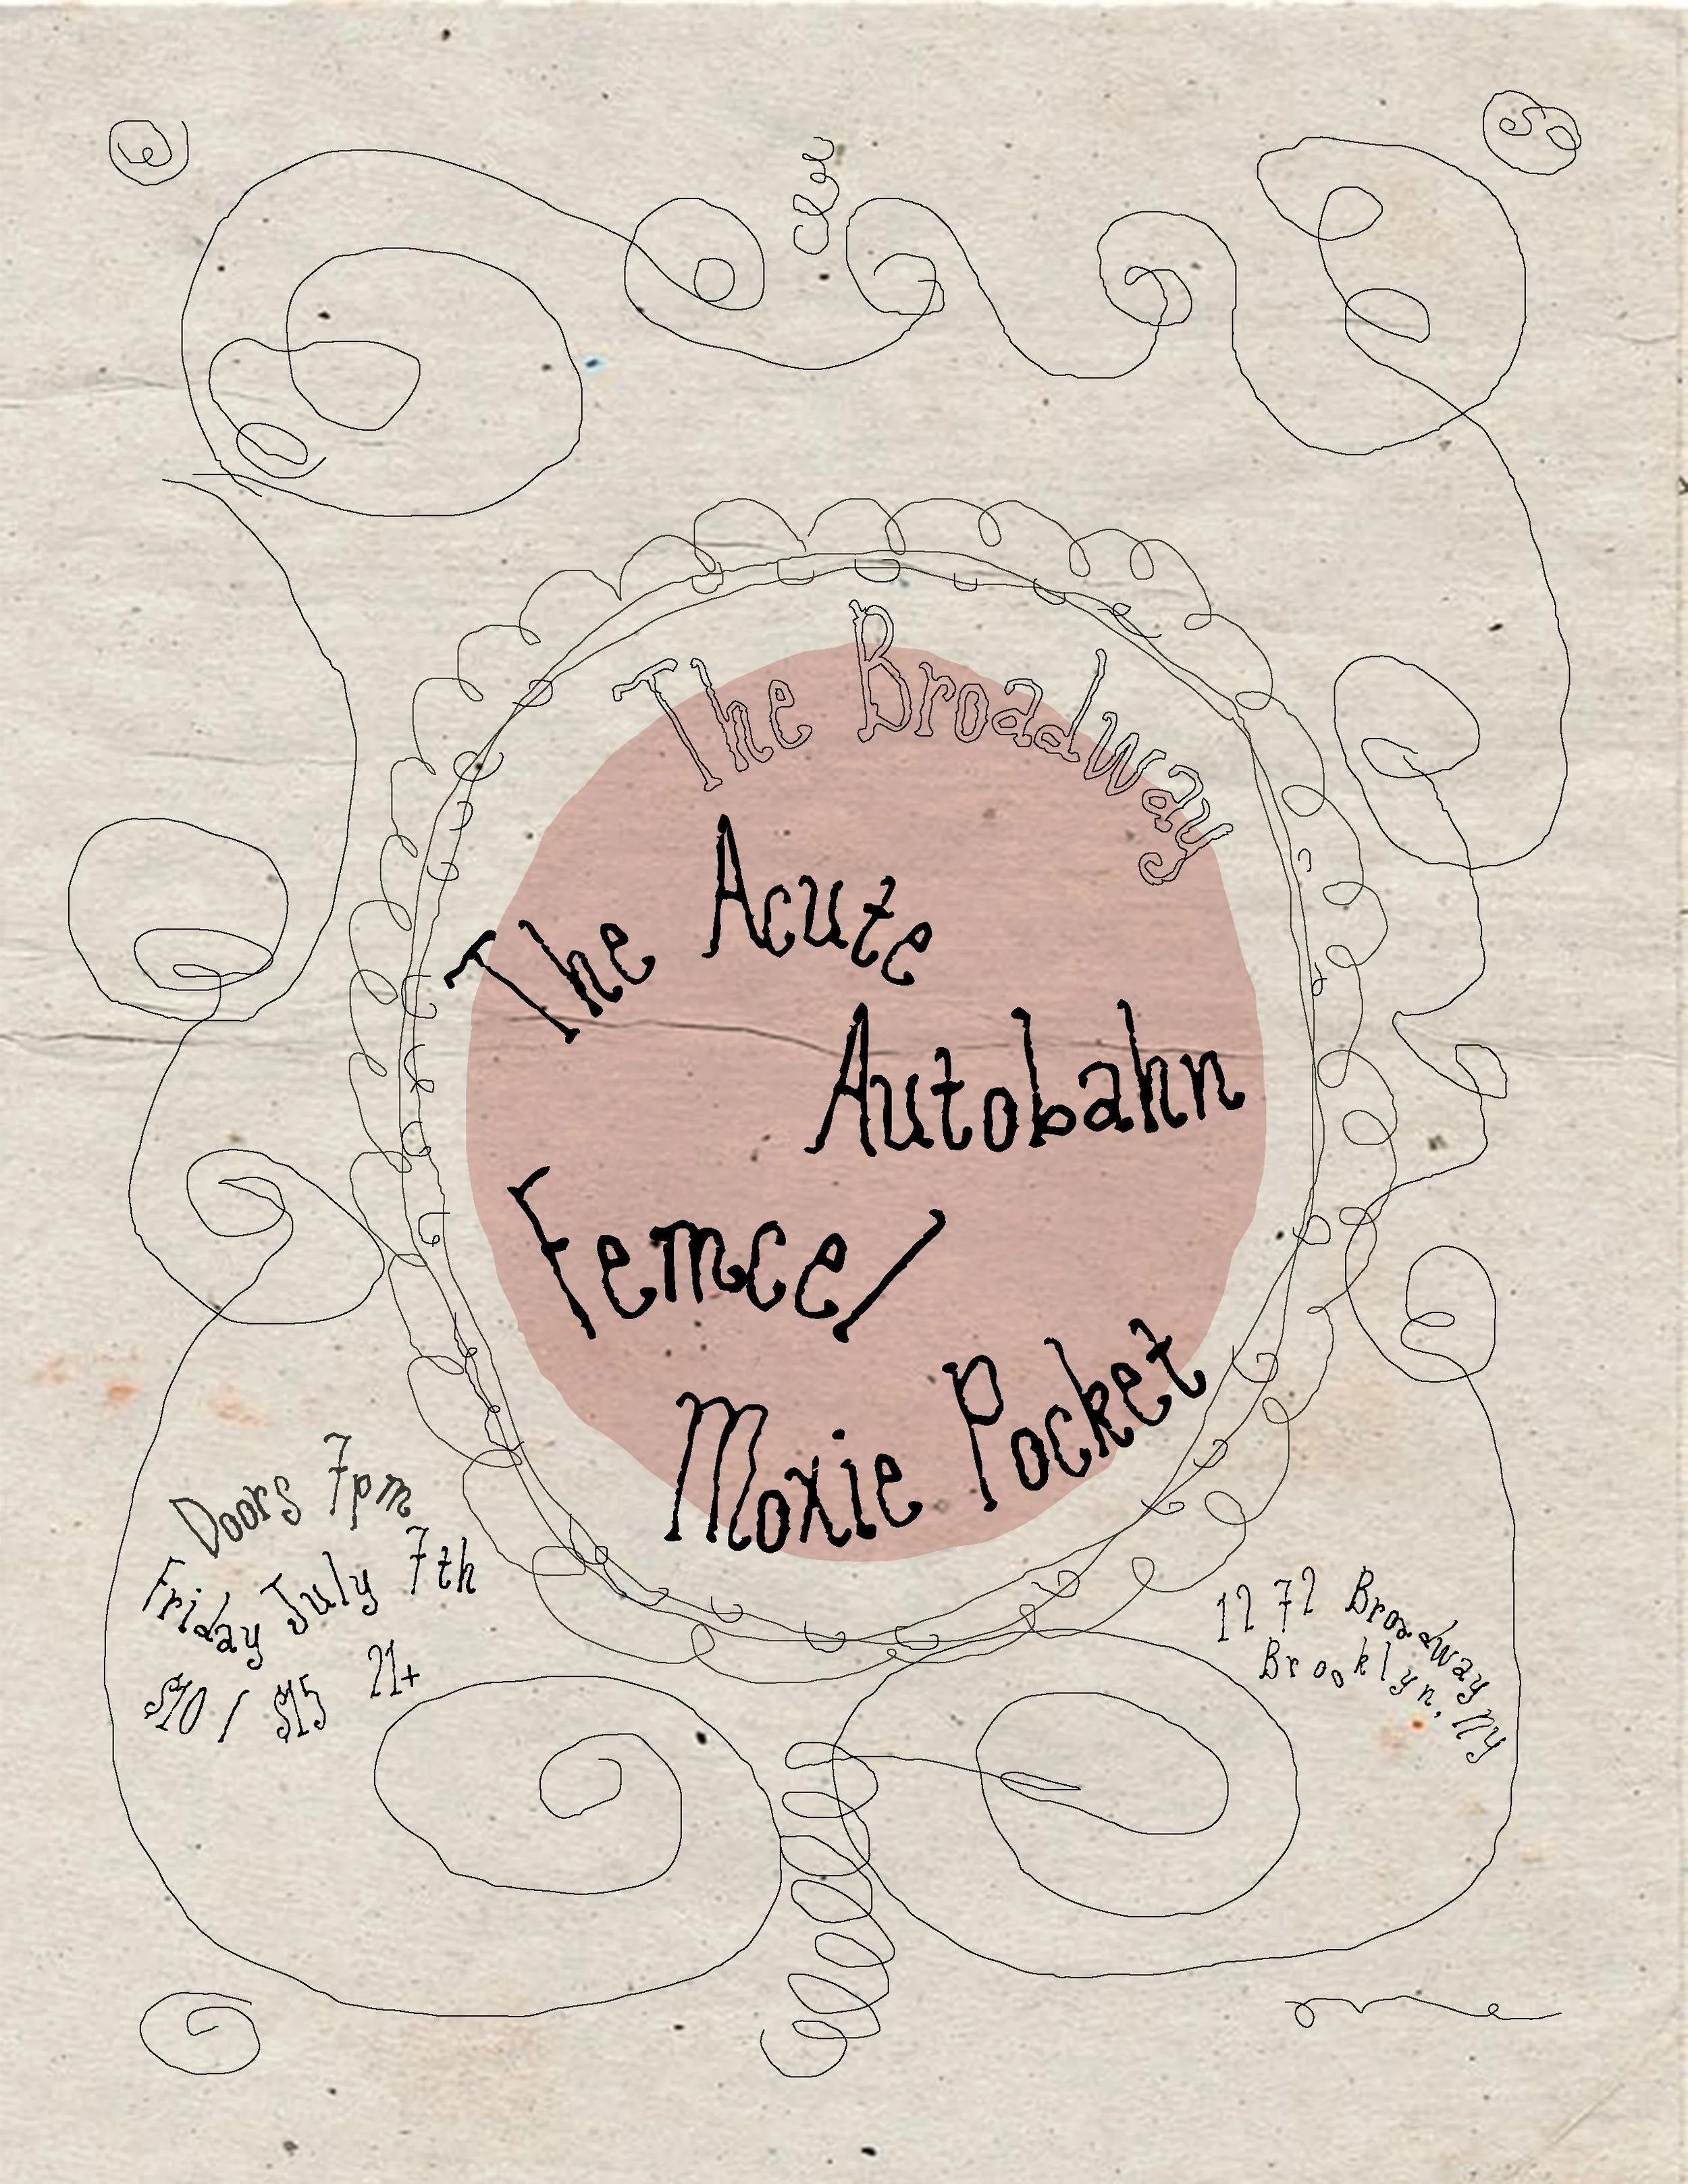 The Broadway
The Acute
Autobahn
Femcel
Moxie Pocket
Doors 7pm
Friday July 7th
$10 / $15 21+
1272 Broadway
Brooklyn, NY